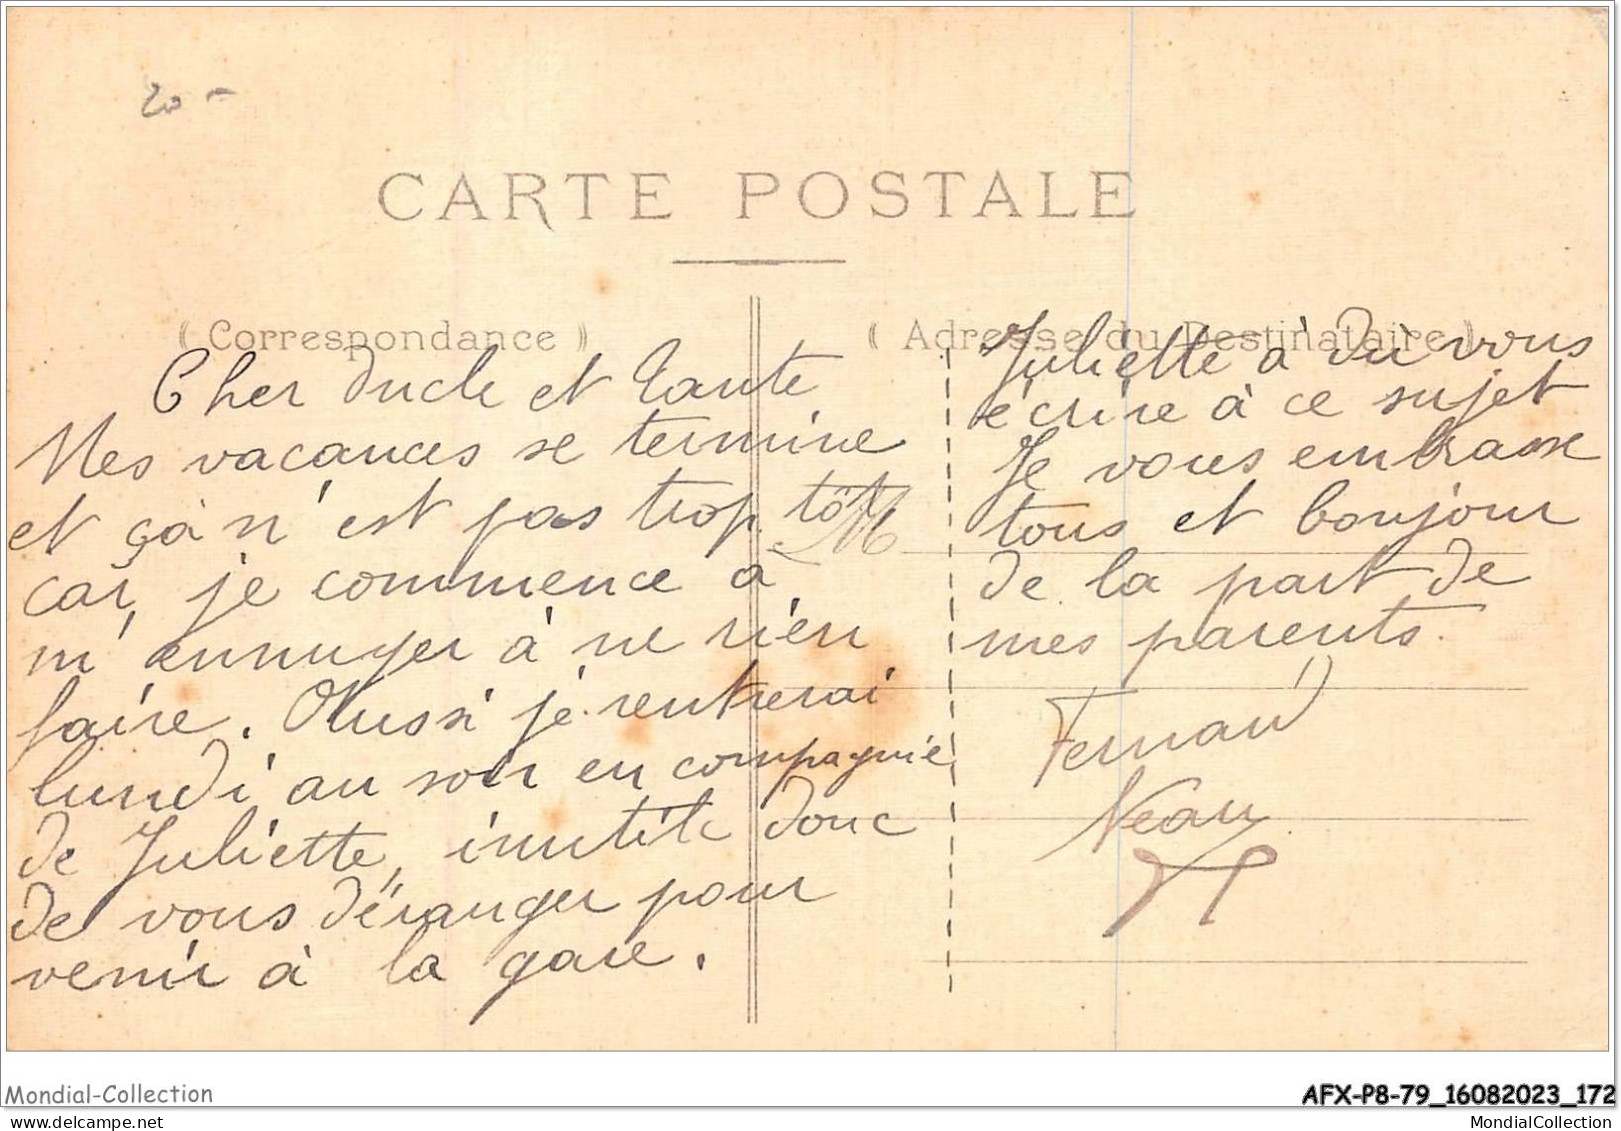 20 -
CARTE POSTALE
(Correspondance)
(Adresse du Destinataire)
Cher Oncle et Tante
Mes vacances se termine
et ça n'est pas trop tôt
car, je commence à
m'ennuyer à ne rien
faire. Aussi je rentrerai
lundi au soir en compagnie
de Juliette, inutile donc
de vous déranger pour
venir à la gare.
M
Juliette à dù vous
écrire à ce sujet
Je vous embrasse
tous et bonjour
de la part de
mes parents.
Fernand
Neau
Mondial-Collection
AFX-P8-79_16082023_172
delcampe.net
MondialCollection